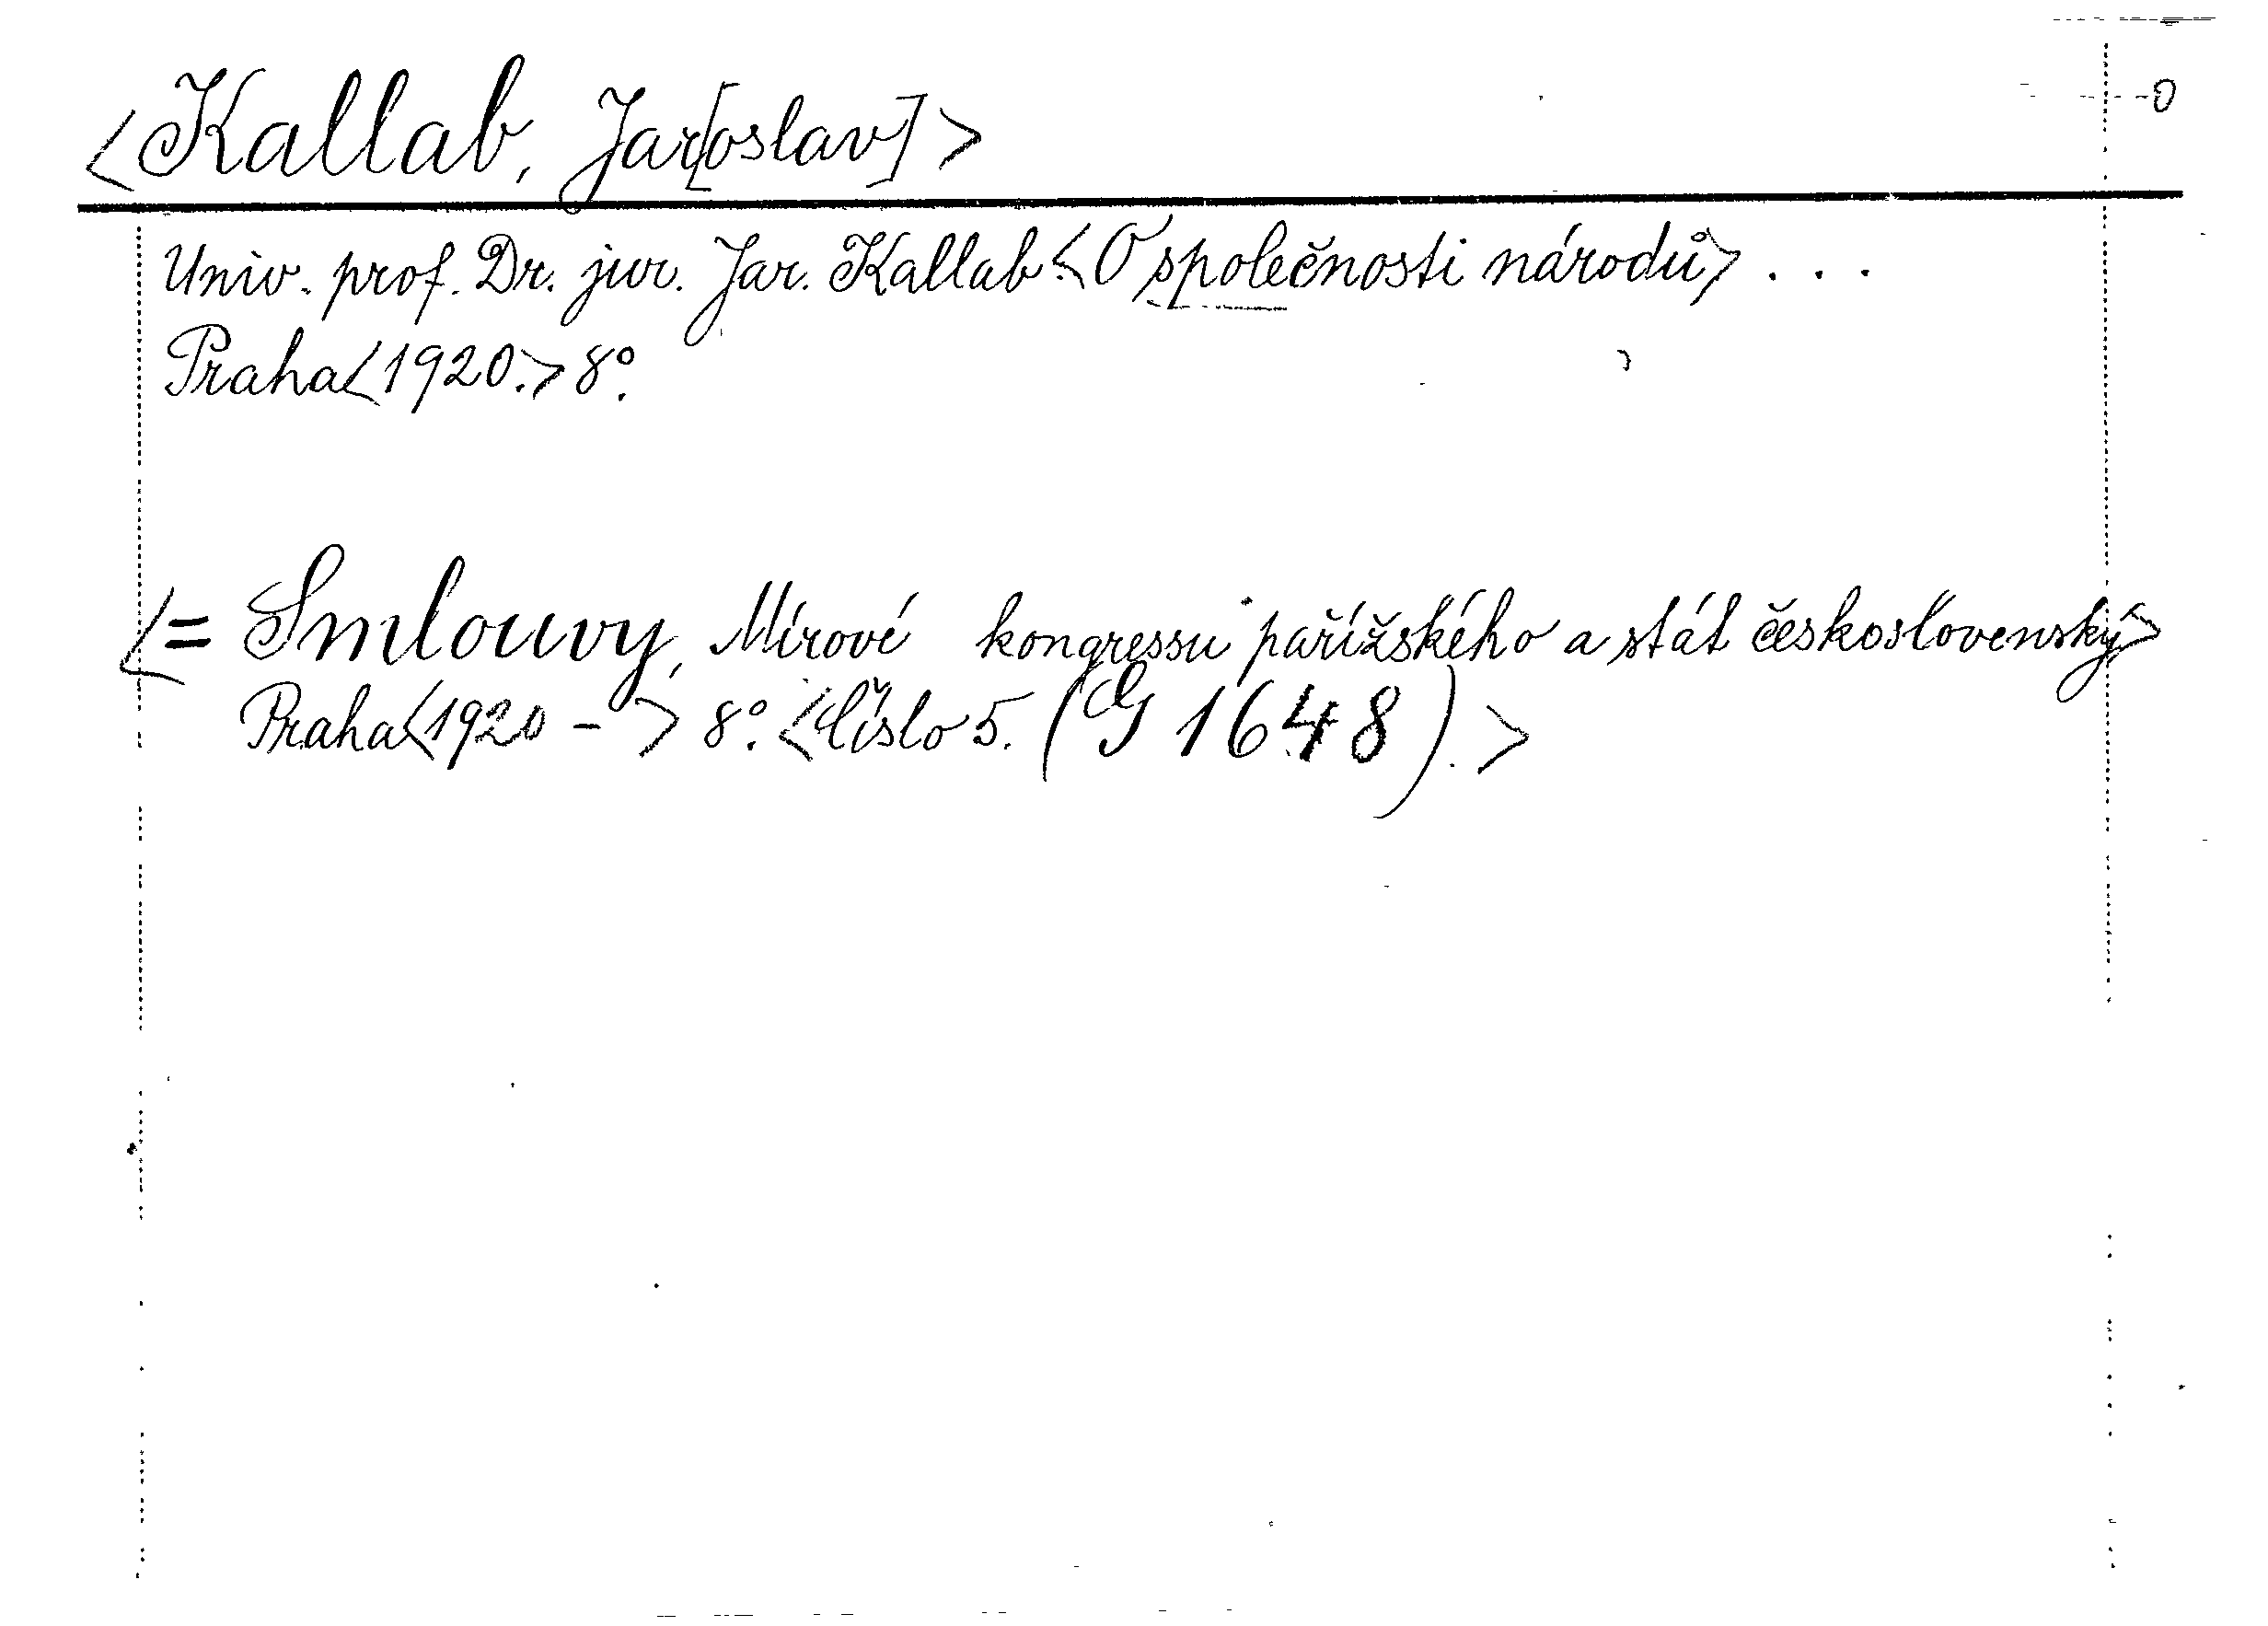 <Kallab, Jar[oslav]>
0
Univ. prof. Dr. jur. Jar. Kallab: <O společnosti národů> ...
Praha <1920.> 8°.
<= Smlouvy, Mírové kongressu pařížského a stát československý.>
Praha <1920 - > 8°. <Číslo 5. (G 1648).>